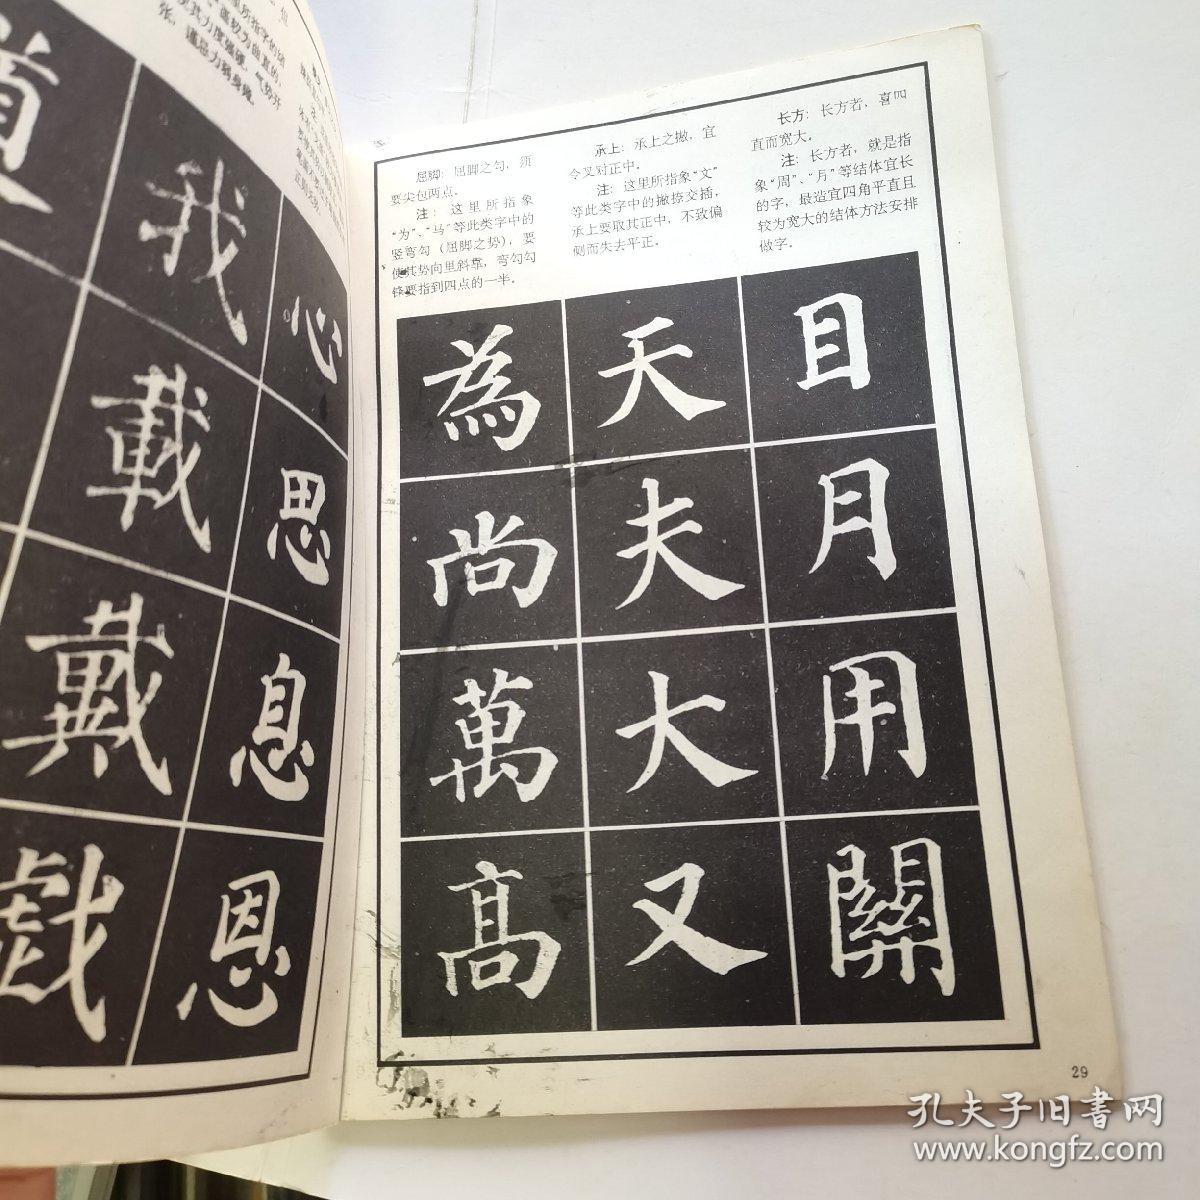 屈脚：屈脚之勾，须
要尖包两点。
注：这里所指象
“为”、“马”等此类字中的
竖弯勾（屈脚之势），要
使其势向里斜靠，弯勾勾
锋要指到四点的一半。
承上：承上之撇，宜
令叉对正中。
注：这里所指象“文”
等此类字中的撇捺交插，
承上要取其正中，不致偏
侧而失去平正。
长方：长方者，喜四
直而宽大。
注：长方者，就是指
象“周”、“月”等结体宜长
的字，最造宜四角平直且
较为宽大的结体方法安排
做字。
為 天 目
尚 夫 月
萬 大 用
高 又 關
我 心
載 思
戴 息
戲 恩
29
孔夫子旧書网
www.kongfz.com